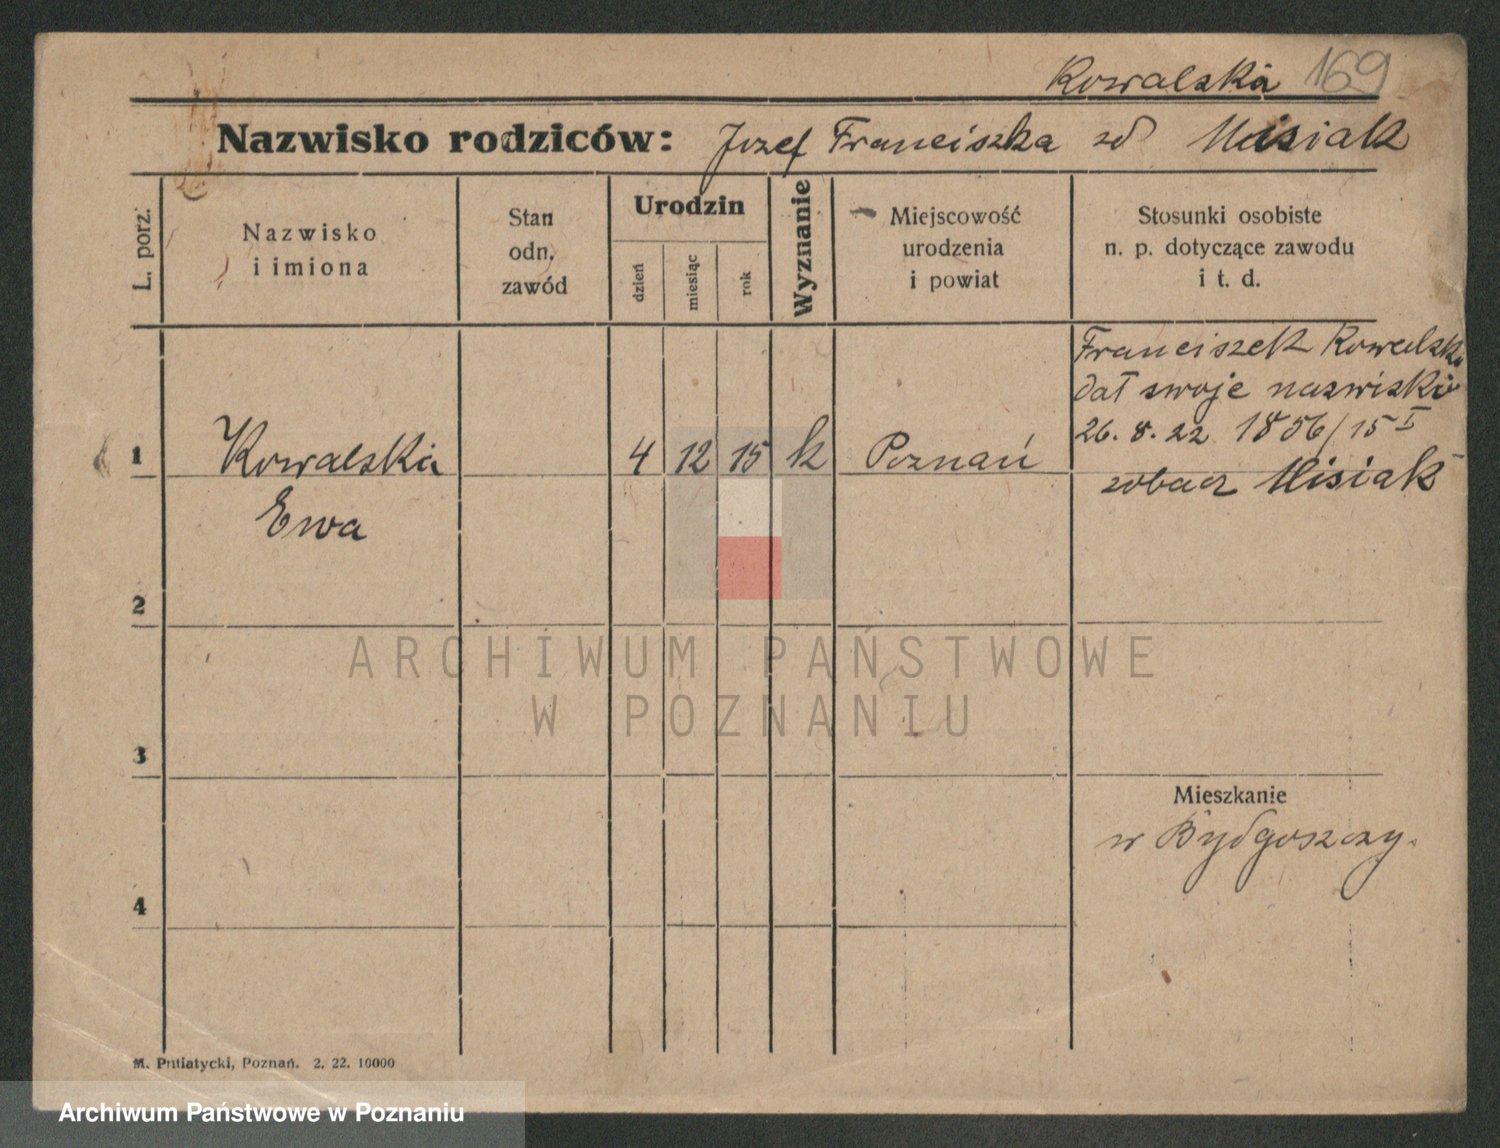 Kowalska 169
Nazwisko rodziców: Jozef Franciszka zd Misiak
L. porz.
Nazwisko
i imiona
Stan
odn.
zawód
Urodzin
dzień
miesiąc
rok
Wyznanie
Miejscowość
urodzenia
i powiat
Stosunki osobiste
n. p. dotyczące zawodu
i t. d.
Franciszek Kowalski
dał swoje nazwisko
26. 8. 22 1856/15 I
1 Kowalska 4 12 15 k Poznań
zobacz Misiak
Ewa
2
ARCHIWUM PAŃSTWOWE
W POZNANIU
3
Mieszkanie
w Bydgoszczy.
4
M. Putiatycki, Poznań. 2. 22. 10000
Archiwum Państwowe w Poznaniu